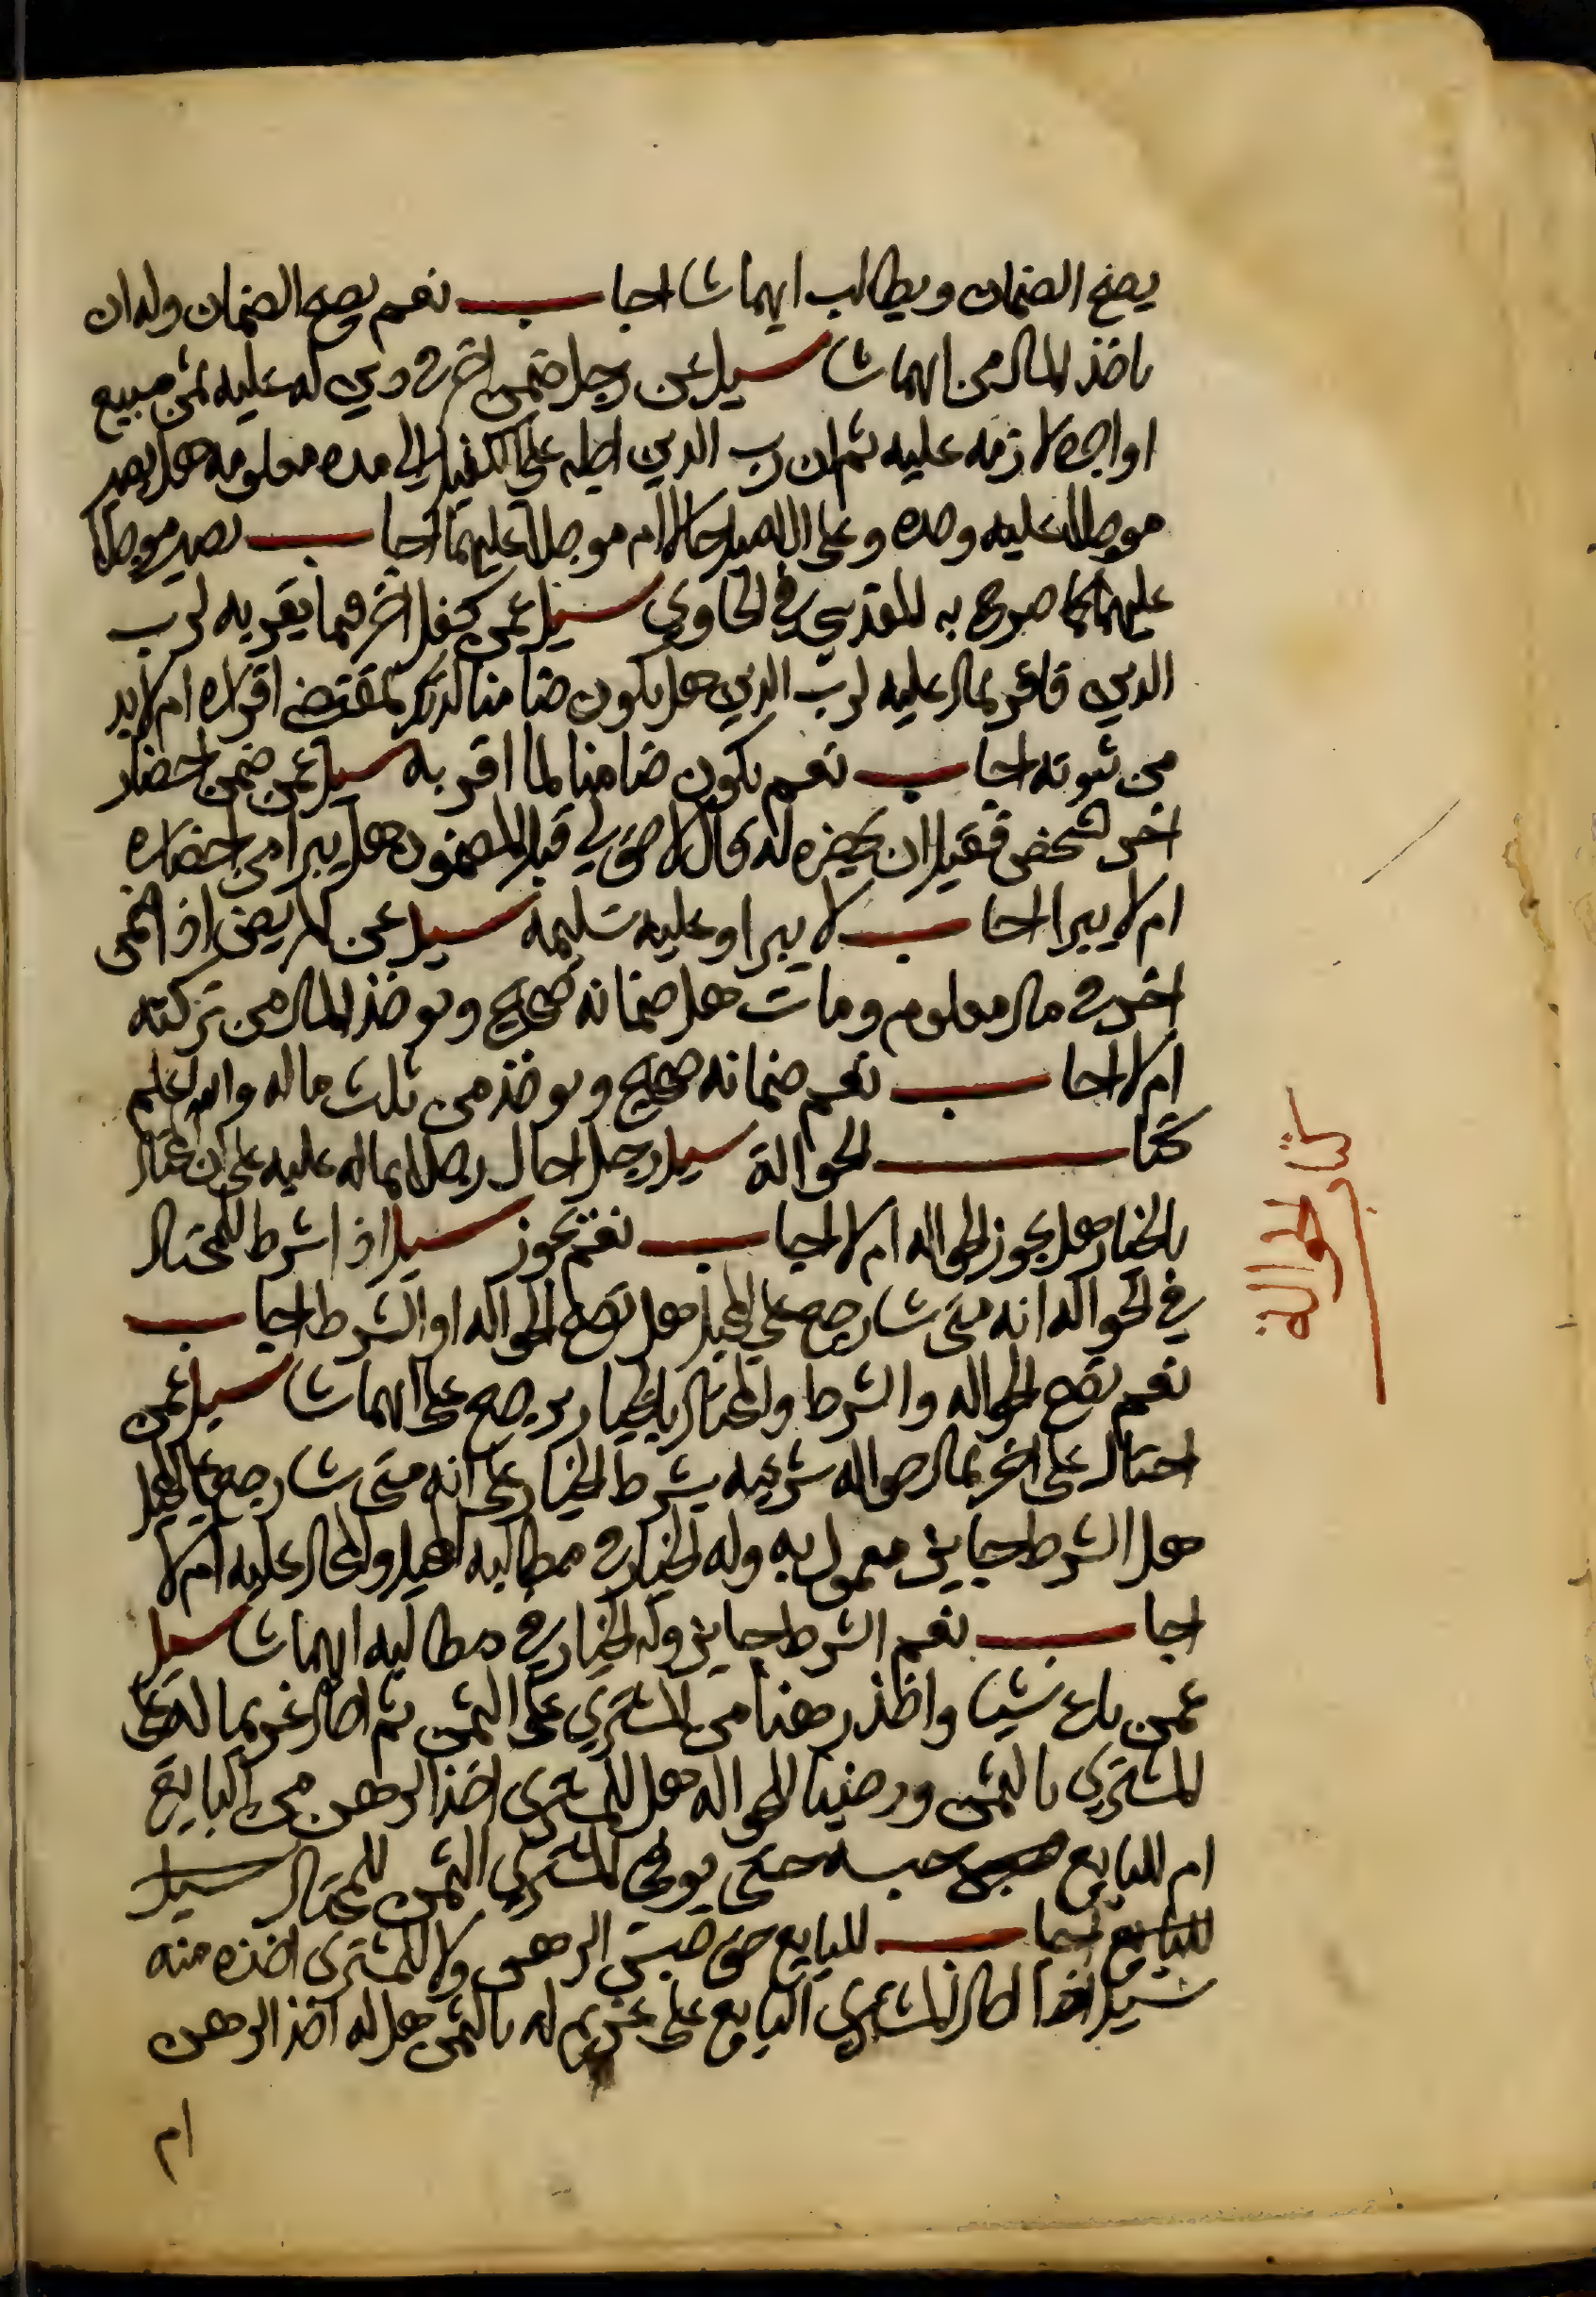 يصح الضمان ويطالب ايهما شا اجاب نعم يصح الضمان وله ان
ياخذ المال من ايهما شا سيل عن رجل ضمن اخر في دين له عليه ثمن مبيع
او اجرة لازمه عليه ثم ان رب الدين اجله على الكفيل الي مده معلومه هل يصير
موجلا عليه وحده وعلى الاصيل حالا ام موجلا عليهما اجاب يصير موجلا
عليهما كما صرح به المقدسي في الحاوي سيل عمن كفل اخر فيما يقر به لرب
الدين فاقر بمال عليه لرب الدين هل يكون ضامنا لذلك بمقتضى اقراره ام لا بد
من ثبوته اجاب نعم يكون ضامنا لما اقر به سيل عمن ضمن احضار
اخر لشخص فقيل ان يحضره له قال لا حق لي قبل المضمون هل يبرا من احضاره
ام لا يبرا اجاب لا يبرا وعليه تسليمه سيل عن المريض اذا ضمن
اخر في مال معلوم ومات هل ضمانه صحيح ويوخذ المال من تركته
ام لا اجاب نعم ضمانه صحيح ويوخذ من ثلث ماله والله اعلم
كتاب الحوالة سيل رجل احال رجلا بماله عليه على ان المحتال
بالخيار هل يجوز الحواله ام لا اجاب نعم تجوز سيل اذا اشرط للمحتال
في الحواله انه متى شا رجع علي المحيل هل تصح الحواله او الشرط اجاب
نعم تصح الحواله والشرط والمحتال بالخيار يرجع على ايهما شا سيل عمن
احتال على اخر بمال حواله شرعيه بشرط الخيار على انه متى شا رجع على المحيل
هل الشرط جايز معمول به وله الخيار في مطالبه المحيل والمحال عليه ام لا
اجاب نعم الشرط جايز وله الخيار في مطالبه ايهما شا سيل
عمن باع شيا واخذ رهنا من المشتري على الثمن ثم احال غريما له على
المشتري بالثمن ورضيا الحواله هل للمشتري اخذ الرهن من البايع
ام للبايع حبسه حتى يوفي المشتري الثمن للمحتال
اجاب للبايع حق حبس الرهن ولا للمشتري اخذه منه
سيل اذا احال المشتري البايع على غريم له بالثمن هل له اخذ الرهن
ام
كتاب الحوالة